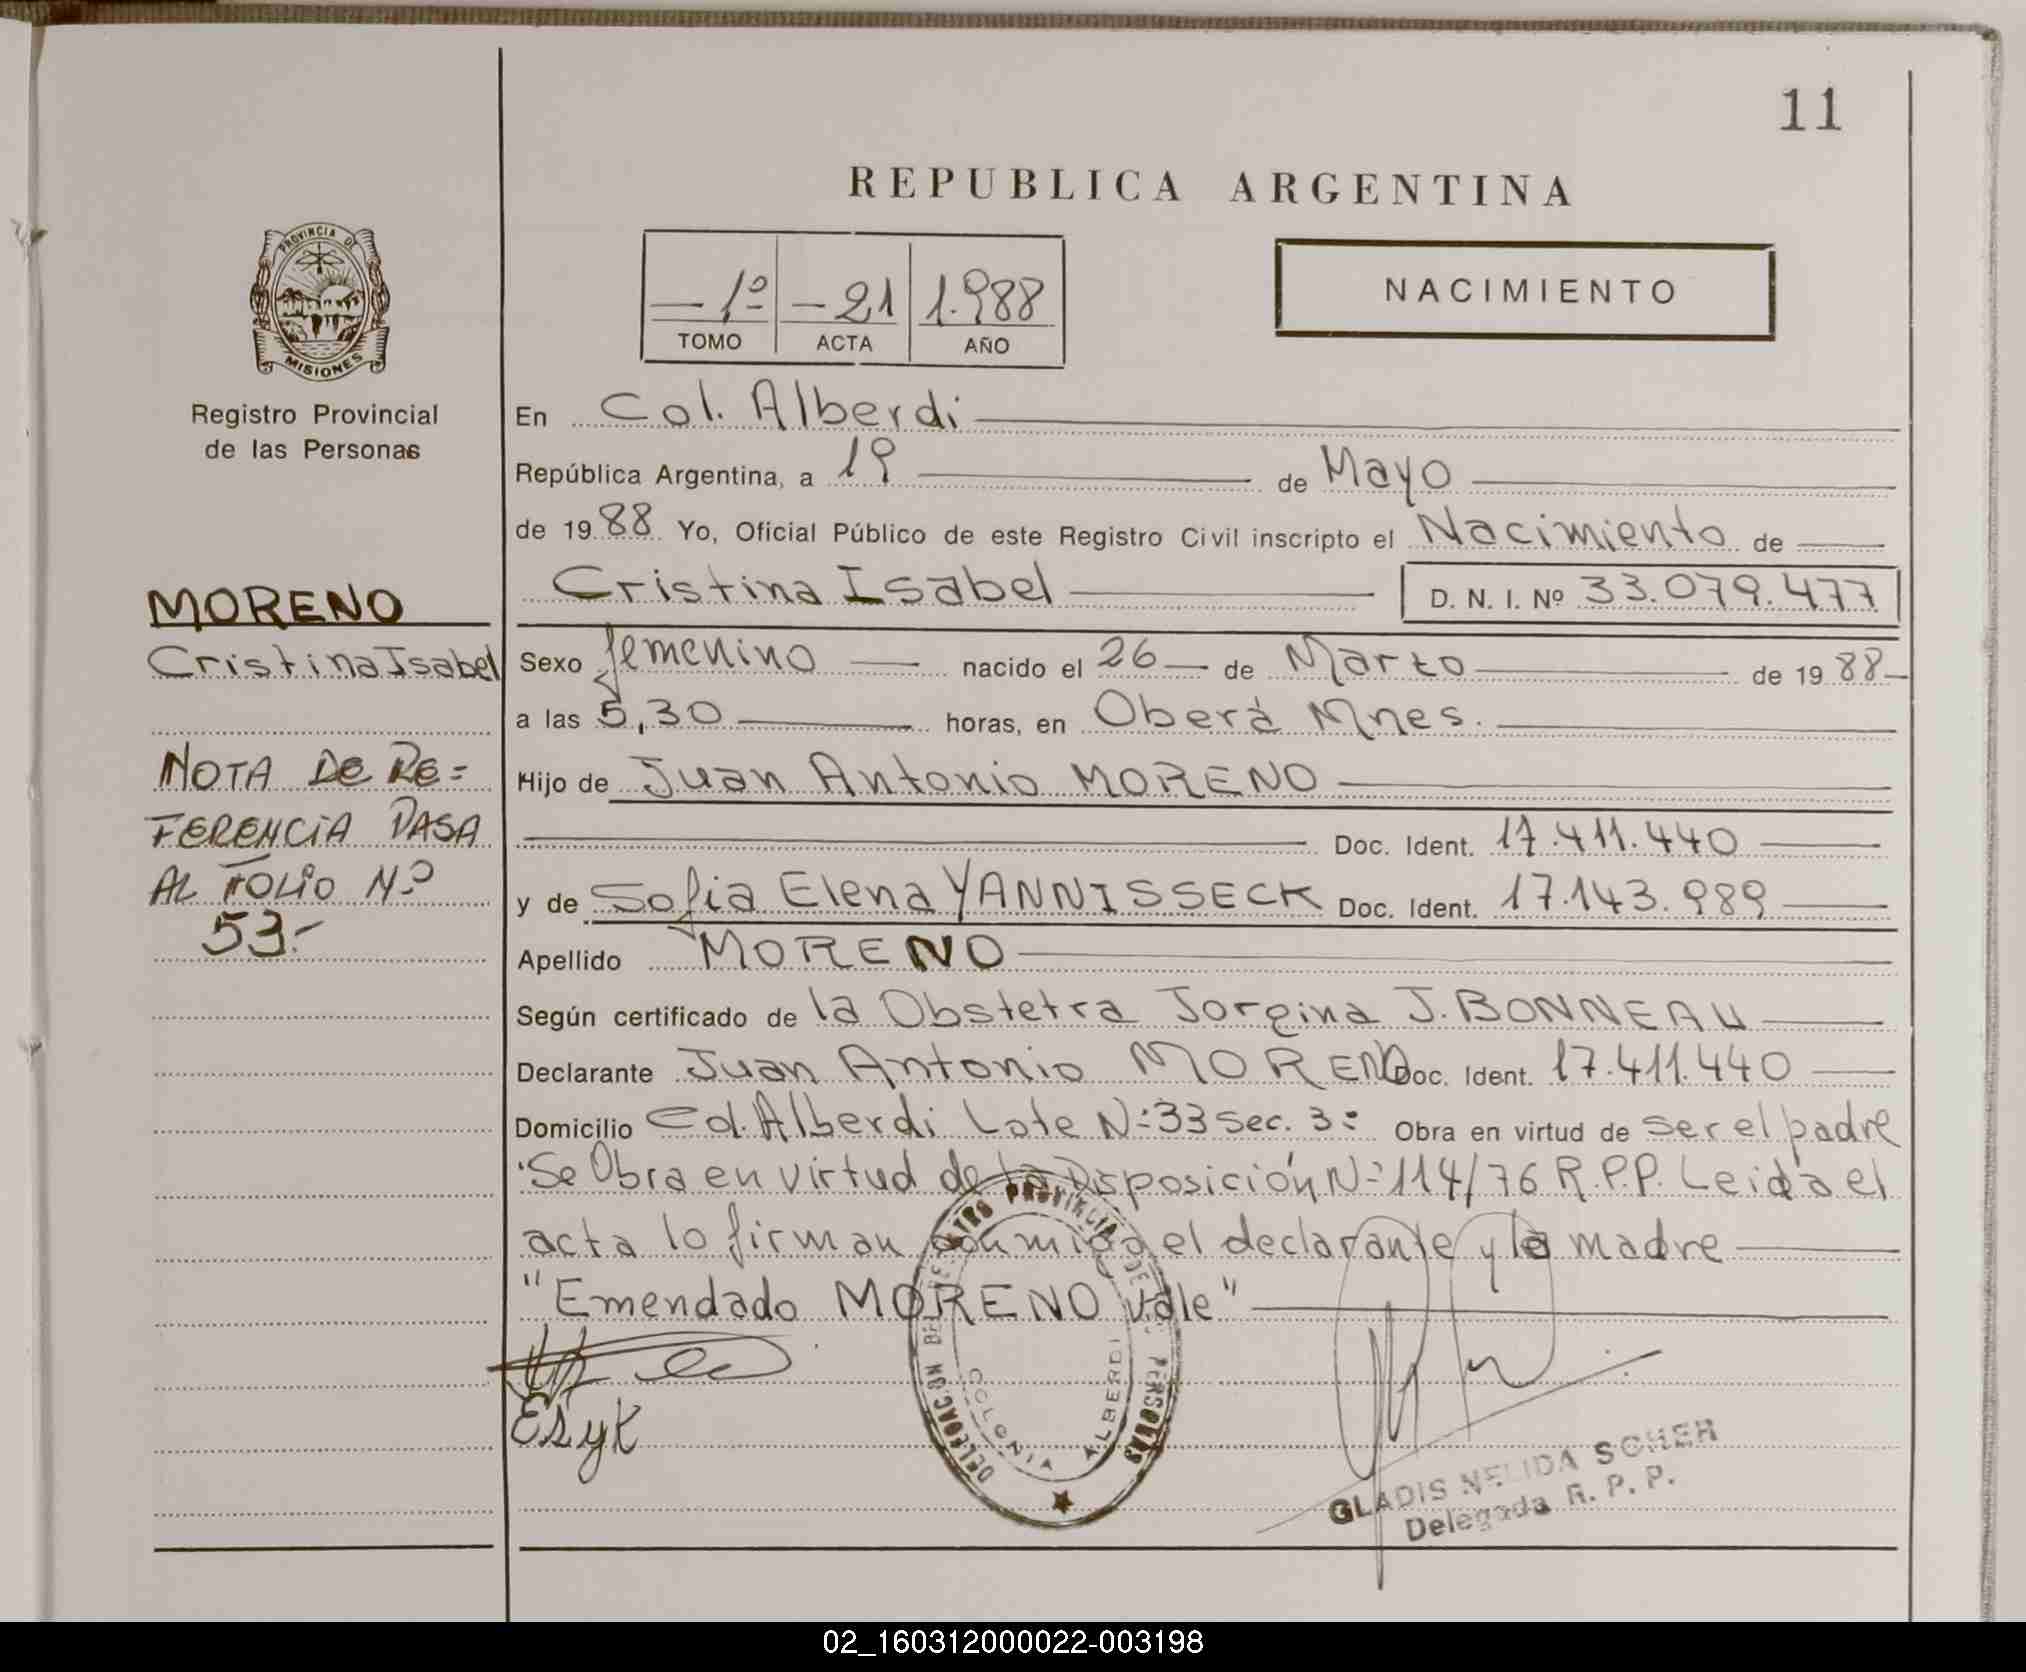 11
REPUBLICA ARGENTINA
PROVINCIA DE
MISIONES
Registro Provincial
de las Personas
— 1º — 21 1.988
TOMO ACTA AÑO
NACIMIENTO
En Col. Alberdi
República Argentina, a 19 de Mayo
de 1988 Yo, Oficial Público de este Registro Civil inscripto el Nacimiento de
Cristina Isabel D. N. I. Nº 33.079.477
Sexo femenino nacido el 26 de Marzo de 1988
a las 5,30 horas, en Oberá Mnes.
Hijo de Juan Antonio MORENO
Doc. Ident. 17.411.440
y de Sofia Elena YANNISSECK Doc. Ident. 17.143.989
Apellido MORENO
Según certificado de la Obstetra Jorgina J. BONNEAU
Declarante Juan Antonio MORENO Doc. Ident. 17.411.440
Domicilio Col. Alberdi Lote Nº 33 Sec. 3º Obra en virtud de ser el padre
Se Obra en virtud de la Disposición Nº 114/76 R.P.P. Leida el
acta lo firman conmigo el declarante y la madre
"Emendado MORENO vale"
MORENO
Cristina Isabel
NOTA DE RE=
FERENCIA PASA
AL FOLIO Nº
53.-
ESyK
DELEGACION DEL REGISTRO PROVINCIAL DE LAS PERSONAS
COLONIA ALBERDI
GLADIS NELIDA SCHER
Delegada R. P. P.
02_160312000022-003198